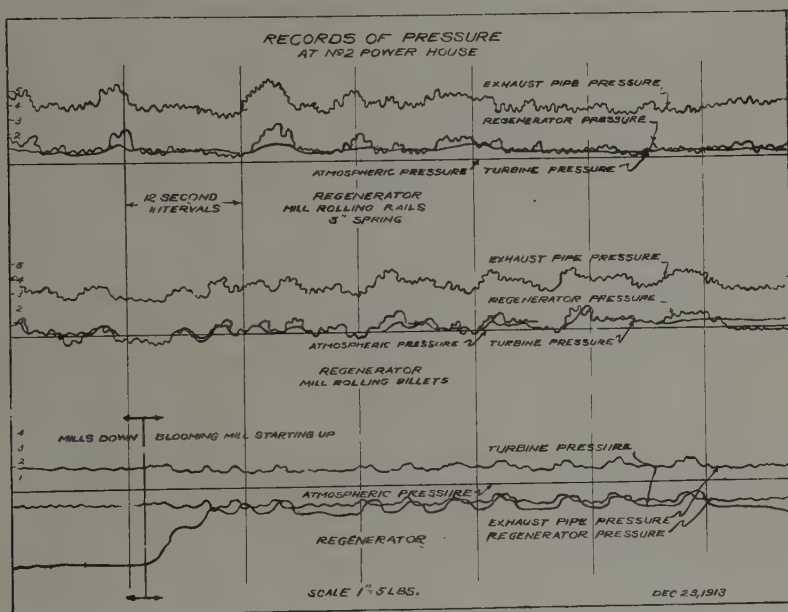 RECORDS OF PRESSURE
AT No2 POWER HOUSE
5
4
3
2
EXHAUST PIPE PRESSURE
REGENERATOR PRESSURE
ATMOSPHERIC PRESSURE
TURBINE PRESSURE
12 SECOND
INTERVALS
REGENERATOR
MILL ROLLING RAILS
SPRING
5
4
3
2
EXHAUST PIPE PRESSURE
REGENERATOR PRESSURE
ATMOSPHERIC PRESSURE
TURBINE PRESSURE
REGENERATOR
MILL ROLLING BILLETS
MILLS DOWN
BLOOMING MILL STARTING UP
4
3
2
1
TURBINE PRESSURE
ATMOSPHERIC PRESSURE
EXHAUST PIPE PRESSURE
REGENERATOR PRESSURE
REGENERATOR
SCALE 1"=5LBS.
DEC 23, 1913